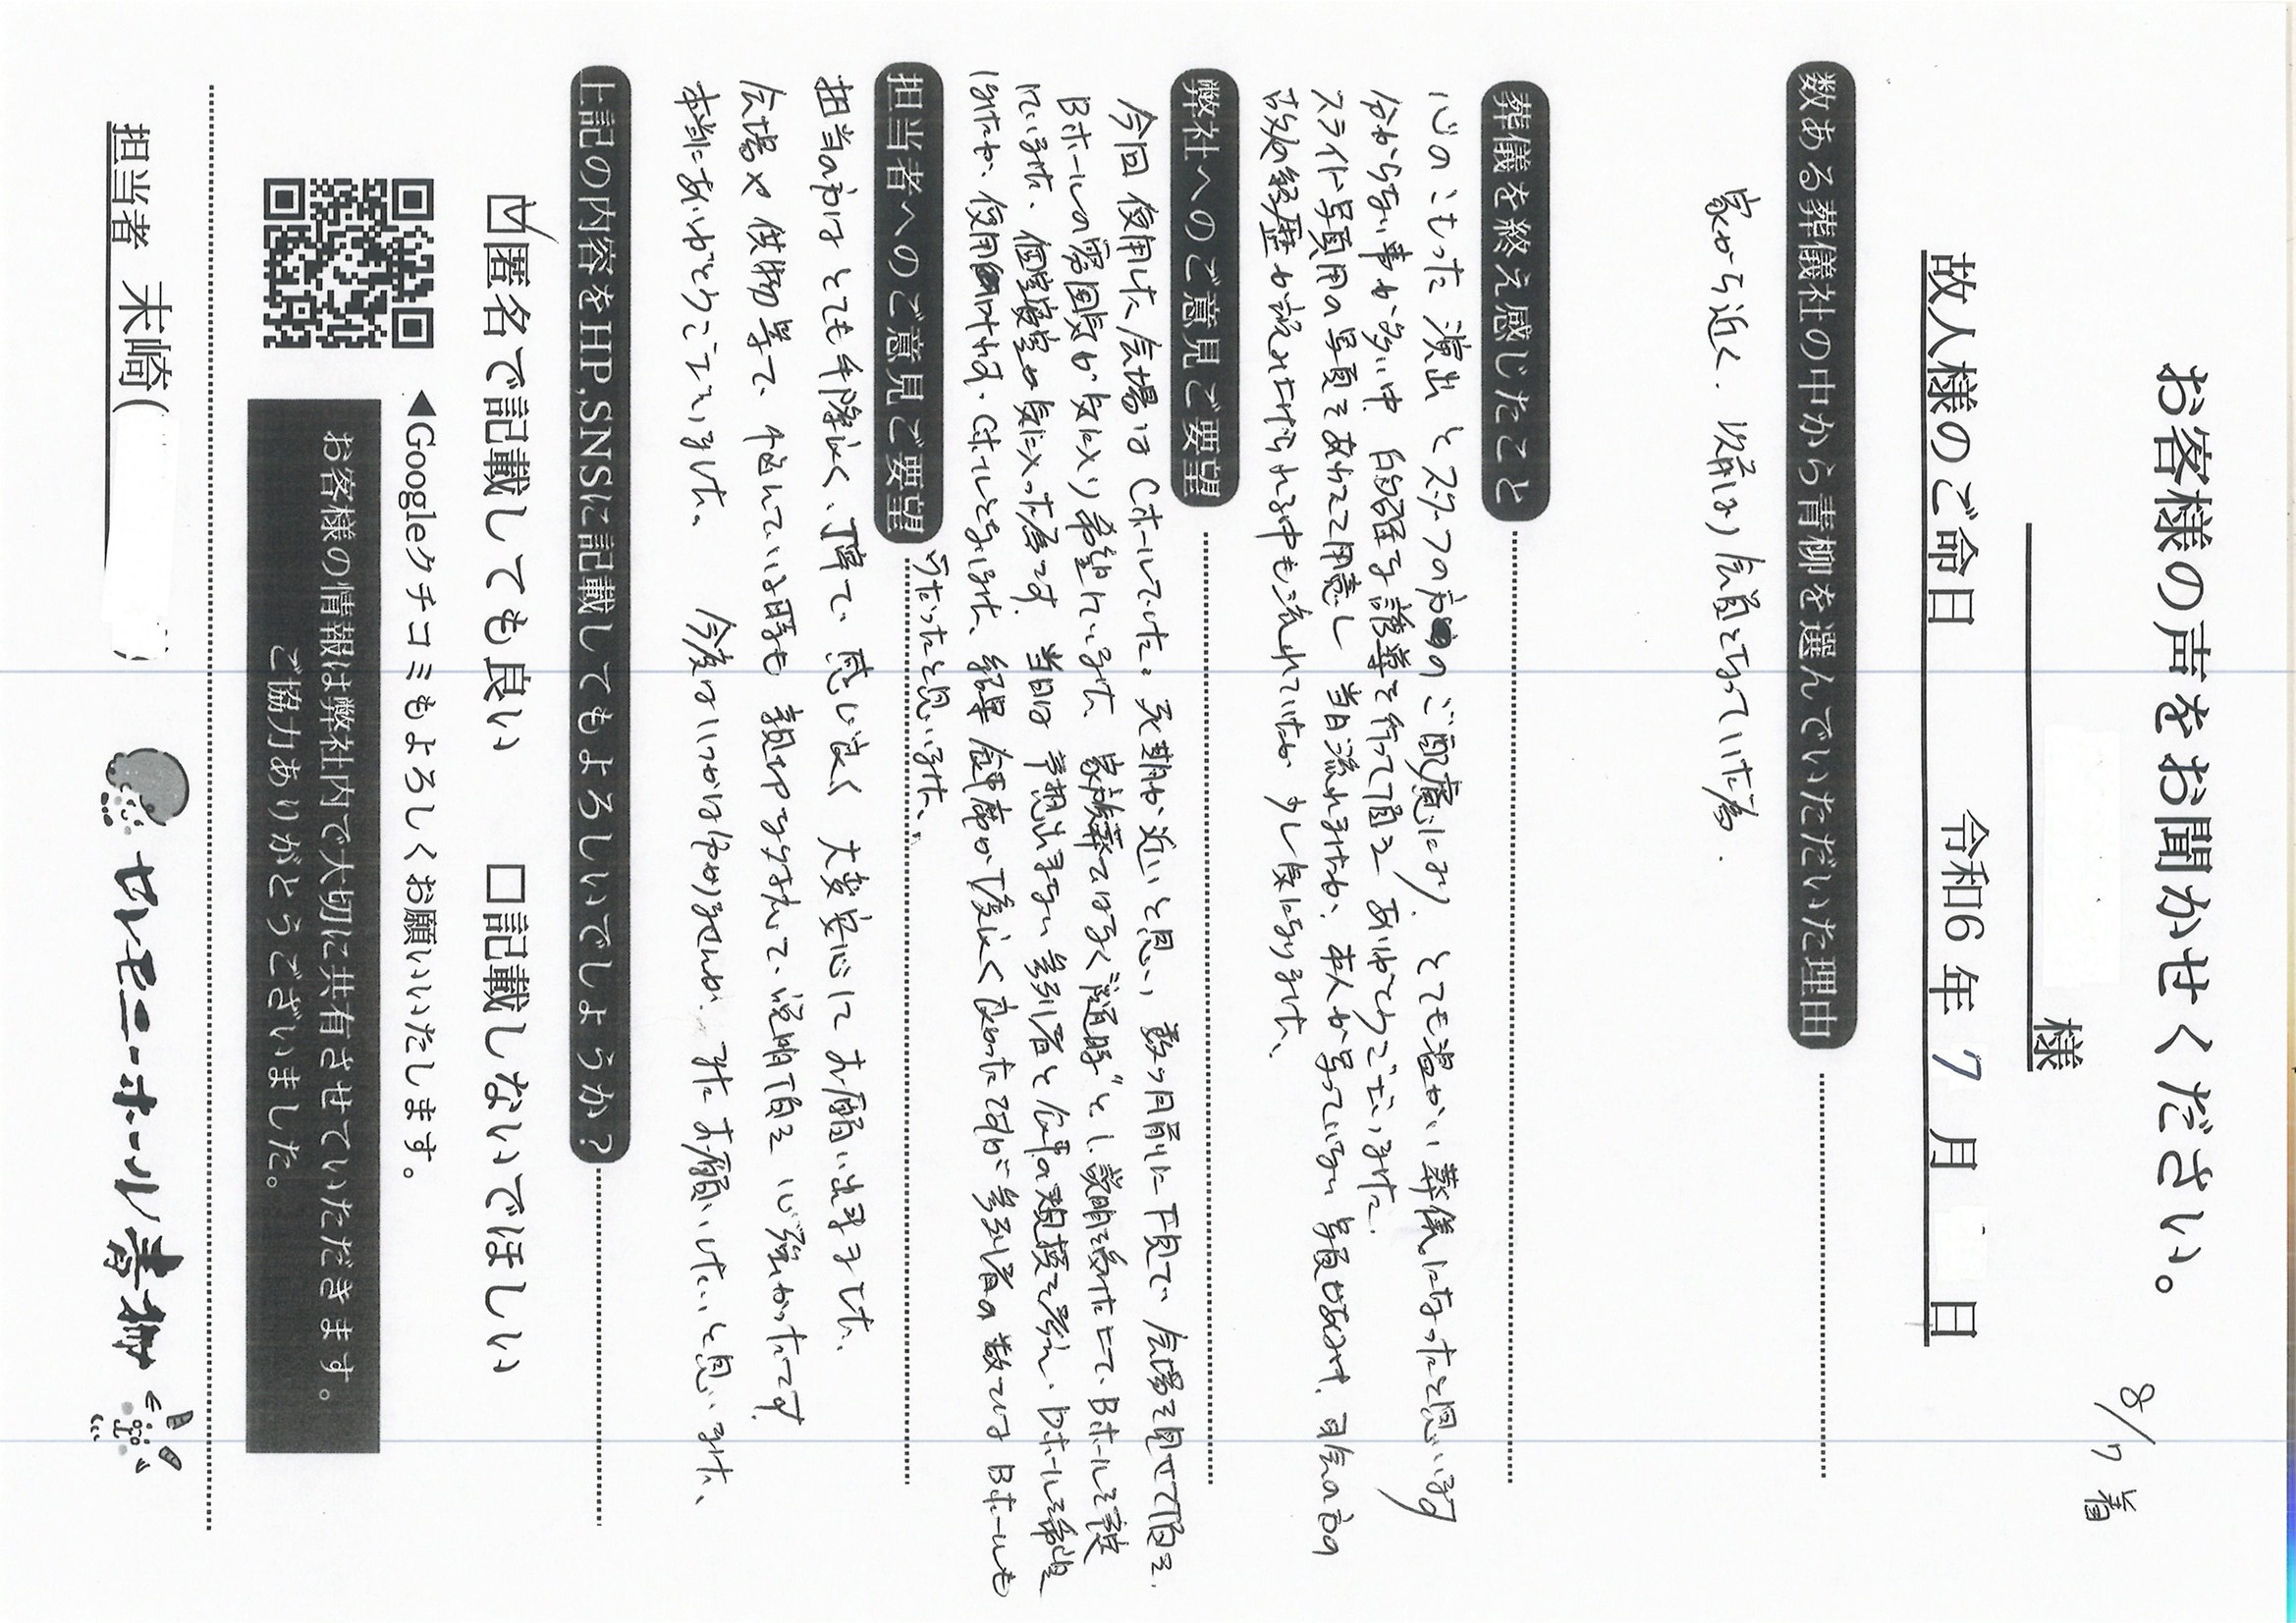 お客様の声をお聞かせください。
8/7 着
様
故人様のご命日 令和6年 7月 日
数ある葬儀社の中から青柳を選んでいただいた理由
家から近く、以前より会員となっていた為.
葬儀を終え感じたこと
心のこもった演出とスタッフの方のご配慮により、とても温かい葬儀になったと思います
分からない事が多い中、的確な誘導を行って頂き ありがとうございました.
スライド写真用の写真をあわてて用意し 当日流れましたが、本人が写っていない写真もあり、司会の方の
故人の経歴が読み上げられる中も流れていたのが 少し気になりました、
弊社へのご意見ご要望
今回使用した会場はCホールでした。死期が近いと思い、数ヶ月前に下見で、会場を見せて頂き、
Bホールの雰囲気が気に入り希望していました、家族葬ではなく"通夜"とし説明を受けた上で、Bホールを予約
していました、個室寝室が気に入った為です. 当日は予想出来ない参列者と食事の規模を考え、Bホールを希望
しましたが、使用出来ければ、Cホールとなりました、結果 食事席が丁度よく良かったですが 参列者の数では Bホールも
担当者へのご意見ご要望
だったと思いました、
担当の方はとても手際よく、丁寧で、感じ良く 大変安心してお願い出来ました、
会場や供物等で、悩んでいる時も 親身になって、説明頂き 心強かったです
本当にありがとうございました、 今度はいつかは分かりませんが、またお願いしたいと思いました、
上記の内容をHP,SNSに記載してもよろしいでしょうか？
☑匿名で記載しても良い □記載しないでほしい
◀Googleクチコミもよろしくお願いいたします。
お客様の情報は弊社内で大切に共有させていただきます。
ご協力ありがとうございました。
担当者 末崎(
セレモニーホール青柳